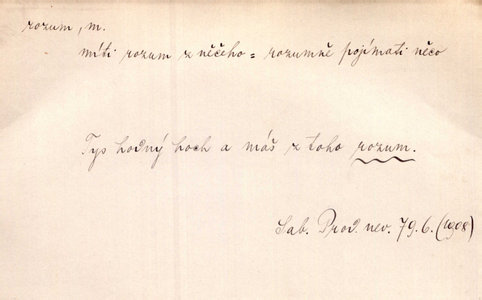 rozum, m.
míti rozum z něčeho = rozumně pojímati něco
Tys hodný hoch a máš z toho rozum.
Sab. Prod. nev. 79.6. (1908)